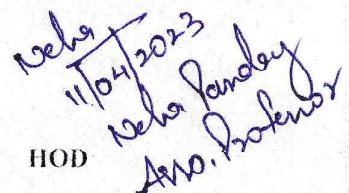 Neha
11/04/2023
Neha Pandey
Asso. Professor
HOD